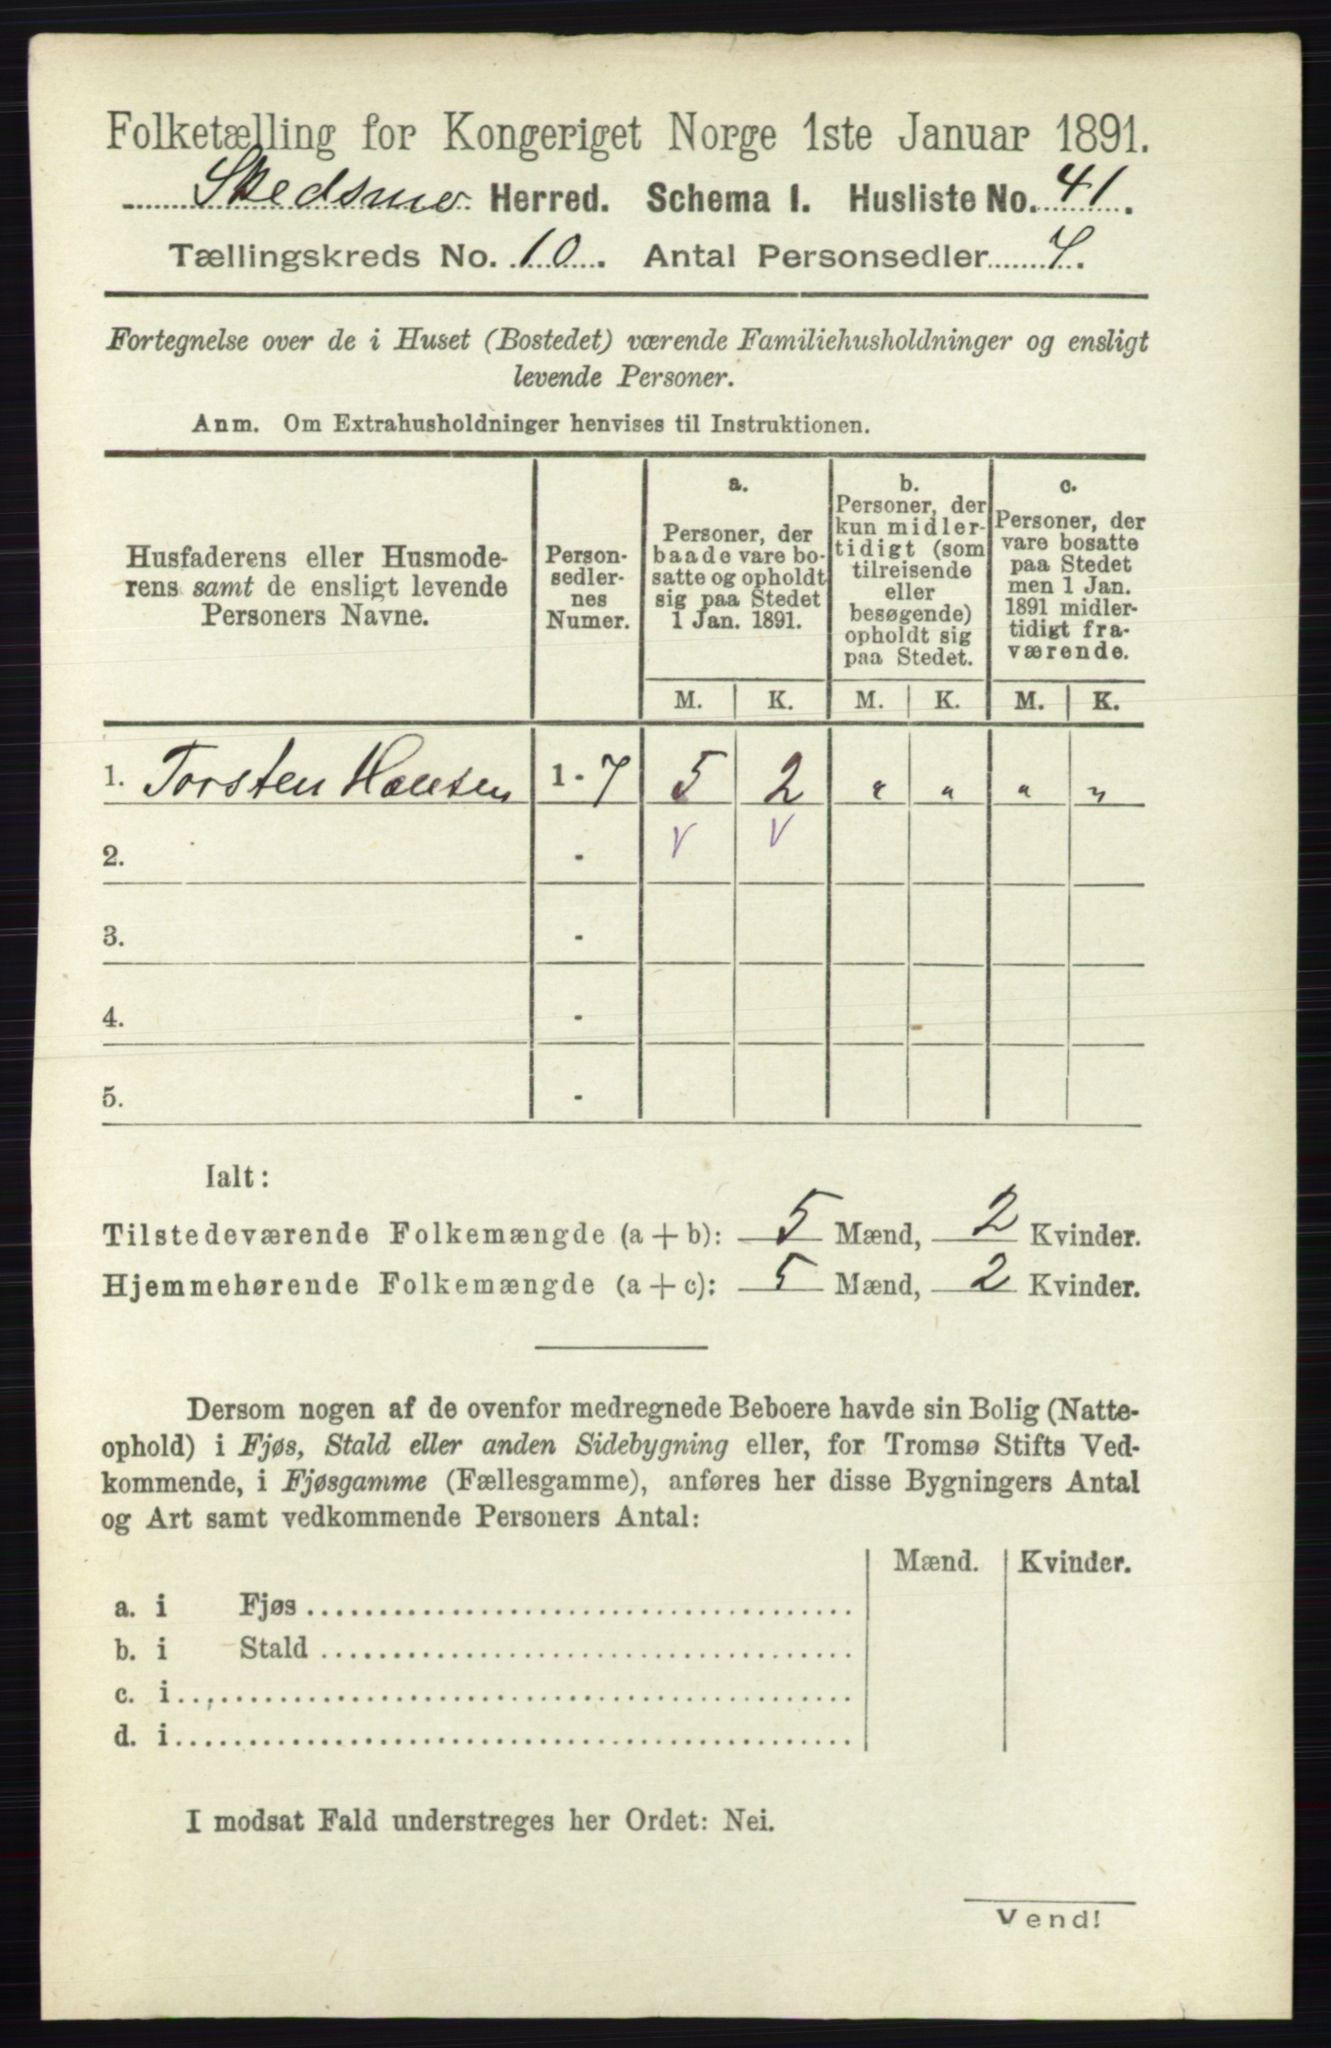 Folketælling for Kongeriget Norge 1ste Januar 1891.
Skedsmo Herred. Schema I. Husliste No. 41.
Tællingskreds No. 10. Antal Personsedler 7.
Fortegnelse over de i Huset (Bostedet) værende Familiehusholdninger og ensligt
levende Personer.
Anm. Om Extrahusholdninger henvises til Instruktionen.
Husfaderens eller Husmode-
rens samt de ensligt levende
Personers Navne.
Person-
sedler-
nes
Numer.
a.
Personer, der
baade vare bo-
satte og opholdt
sig paa Stedet
1 Jan. 1891.
b.
Personer, der
kun midler-
tidigt (som
tilreisende
eller
besøgende)
opholdt sig
paa Stedet.
c.
Personer, der
vare bosatte
paa Stedet
men 1 Jan.
1891 midler-
tidigt fra-
værende.
M. K. M. K. M. K.
1. Torsten Hansen 1 - 7 5 2 " " " "
2. - V V
3. -
4. -
5. -
Ialt:
Tilstedeværende Folkemængde (a + b): 5 Mænd, 2 Kvinder.
Hjemmehørende Folkemængde (a + c): 5 Mænd, 2 Kvinder.
Dersom nogen af de ovenfor medregnede Beboere havde sin Bolig (Natte-
ophold) i Fjøs, Stald eller anden Sidebygning eller, for Tromsø Stifts Ved-
kommende, i Fjøsgamme (Fællesgamme), anføres her disse Bygningers Antal
og Art samt vedkommende Personers Antal:
Mænd. Kvinder.
a. i Fjøs
b. i Stald
c. i
d. i
I modsat Fald understreges her Ordet: Nei.
Vend!